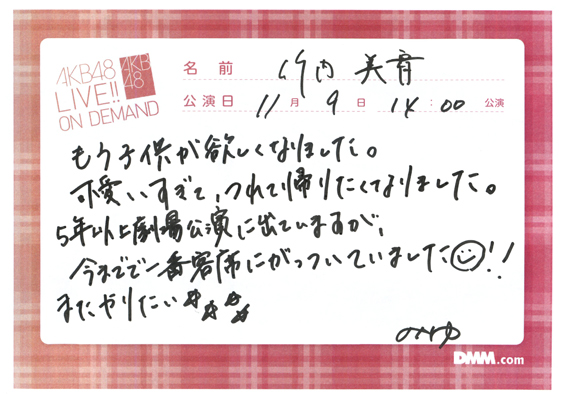 AKB48
LIVE!!
ON DEMAND
AKB
48
名前 竹内 美宥
公演日 11月 9日 14:00 公演
もう子供が欲しくなりました。
可愛いすぎて、つれて帰りたくなりました。
5年以上劇場公演に出ていますが、
今までで一番客席にがっついていました!!
またやりたい
みゆ
DMM.com